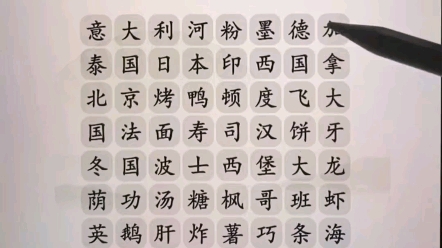 意大利河粉墨德加
泰国日本印西国拿
北京烤鸭顿度飞大
国法面寿司汉饼牙
冬国波士西堡大龙
荫功汤糖枫哥班虾
英鹅肝炸薯巧条海